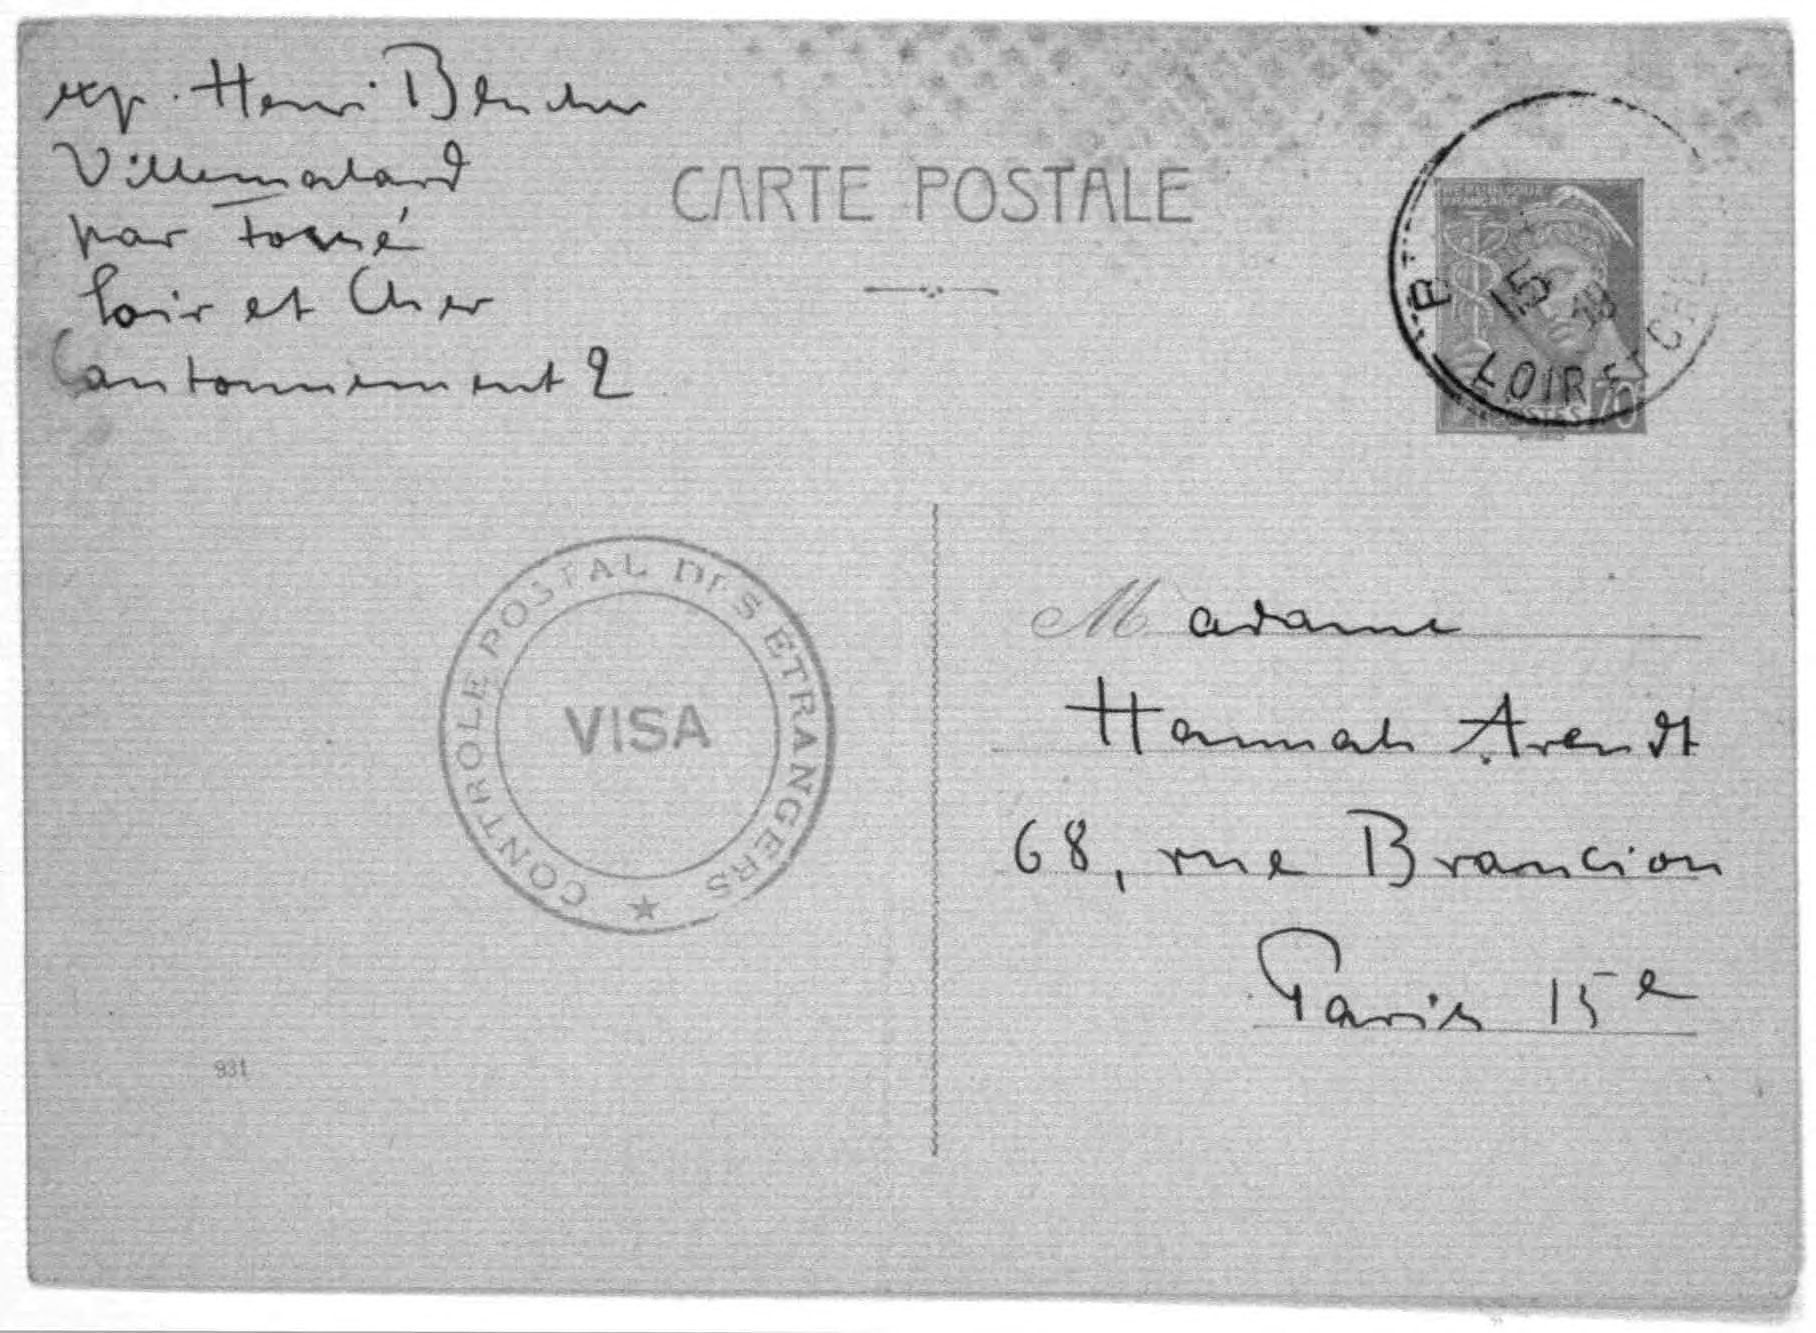 exp. Henri Blücher
Villemalard
par Fossé
Loir et Cher
Cantonnement 2
CARTE POSTALE
REPUBLIQUE
FRANÇAISE
15
18
LOIR ET CHER
POSTES 70
CONTROLE POSTAL DES ETRANGERS
VISA
Madame
Hannah Arendt
68, rue Brancion
Paris 15e
931